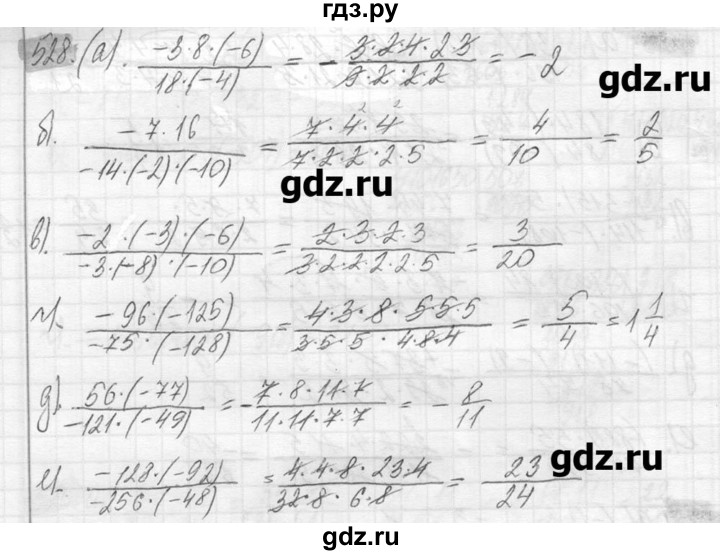 гдз.ру
528. (а). -3·8·(-6) / 18·(-4) = - 3·2·4·2·3 / 9·2·2·2 = -2
гдз.ру
б). -7·16 / -14·(-2)·(-10) = 7·4·4 / 7·2·2·2·5 = 4/10 = 2/5
gdz.ru
в). -2·(-3)·(-6) / -3·(-8)·(-10) = 2·3·2·3 / 3·2·2·2·2·5 = 3/20
г). -96·(-125) / -75·(-128) = 4·3·8·5·5·5 / 3·5·5·4·8·4 = 5/4 = 1 1/4
д). 56·(-77) / -121·(-49) = - 7·8·11·7 / 11·11·7·7 = - 8/11
е). -128·(-92) / -256·(-48) = 4·4·8·23·4 / 32·8·6·8 = 23/24
gdz.ru
gdz.ru